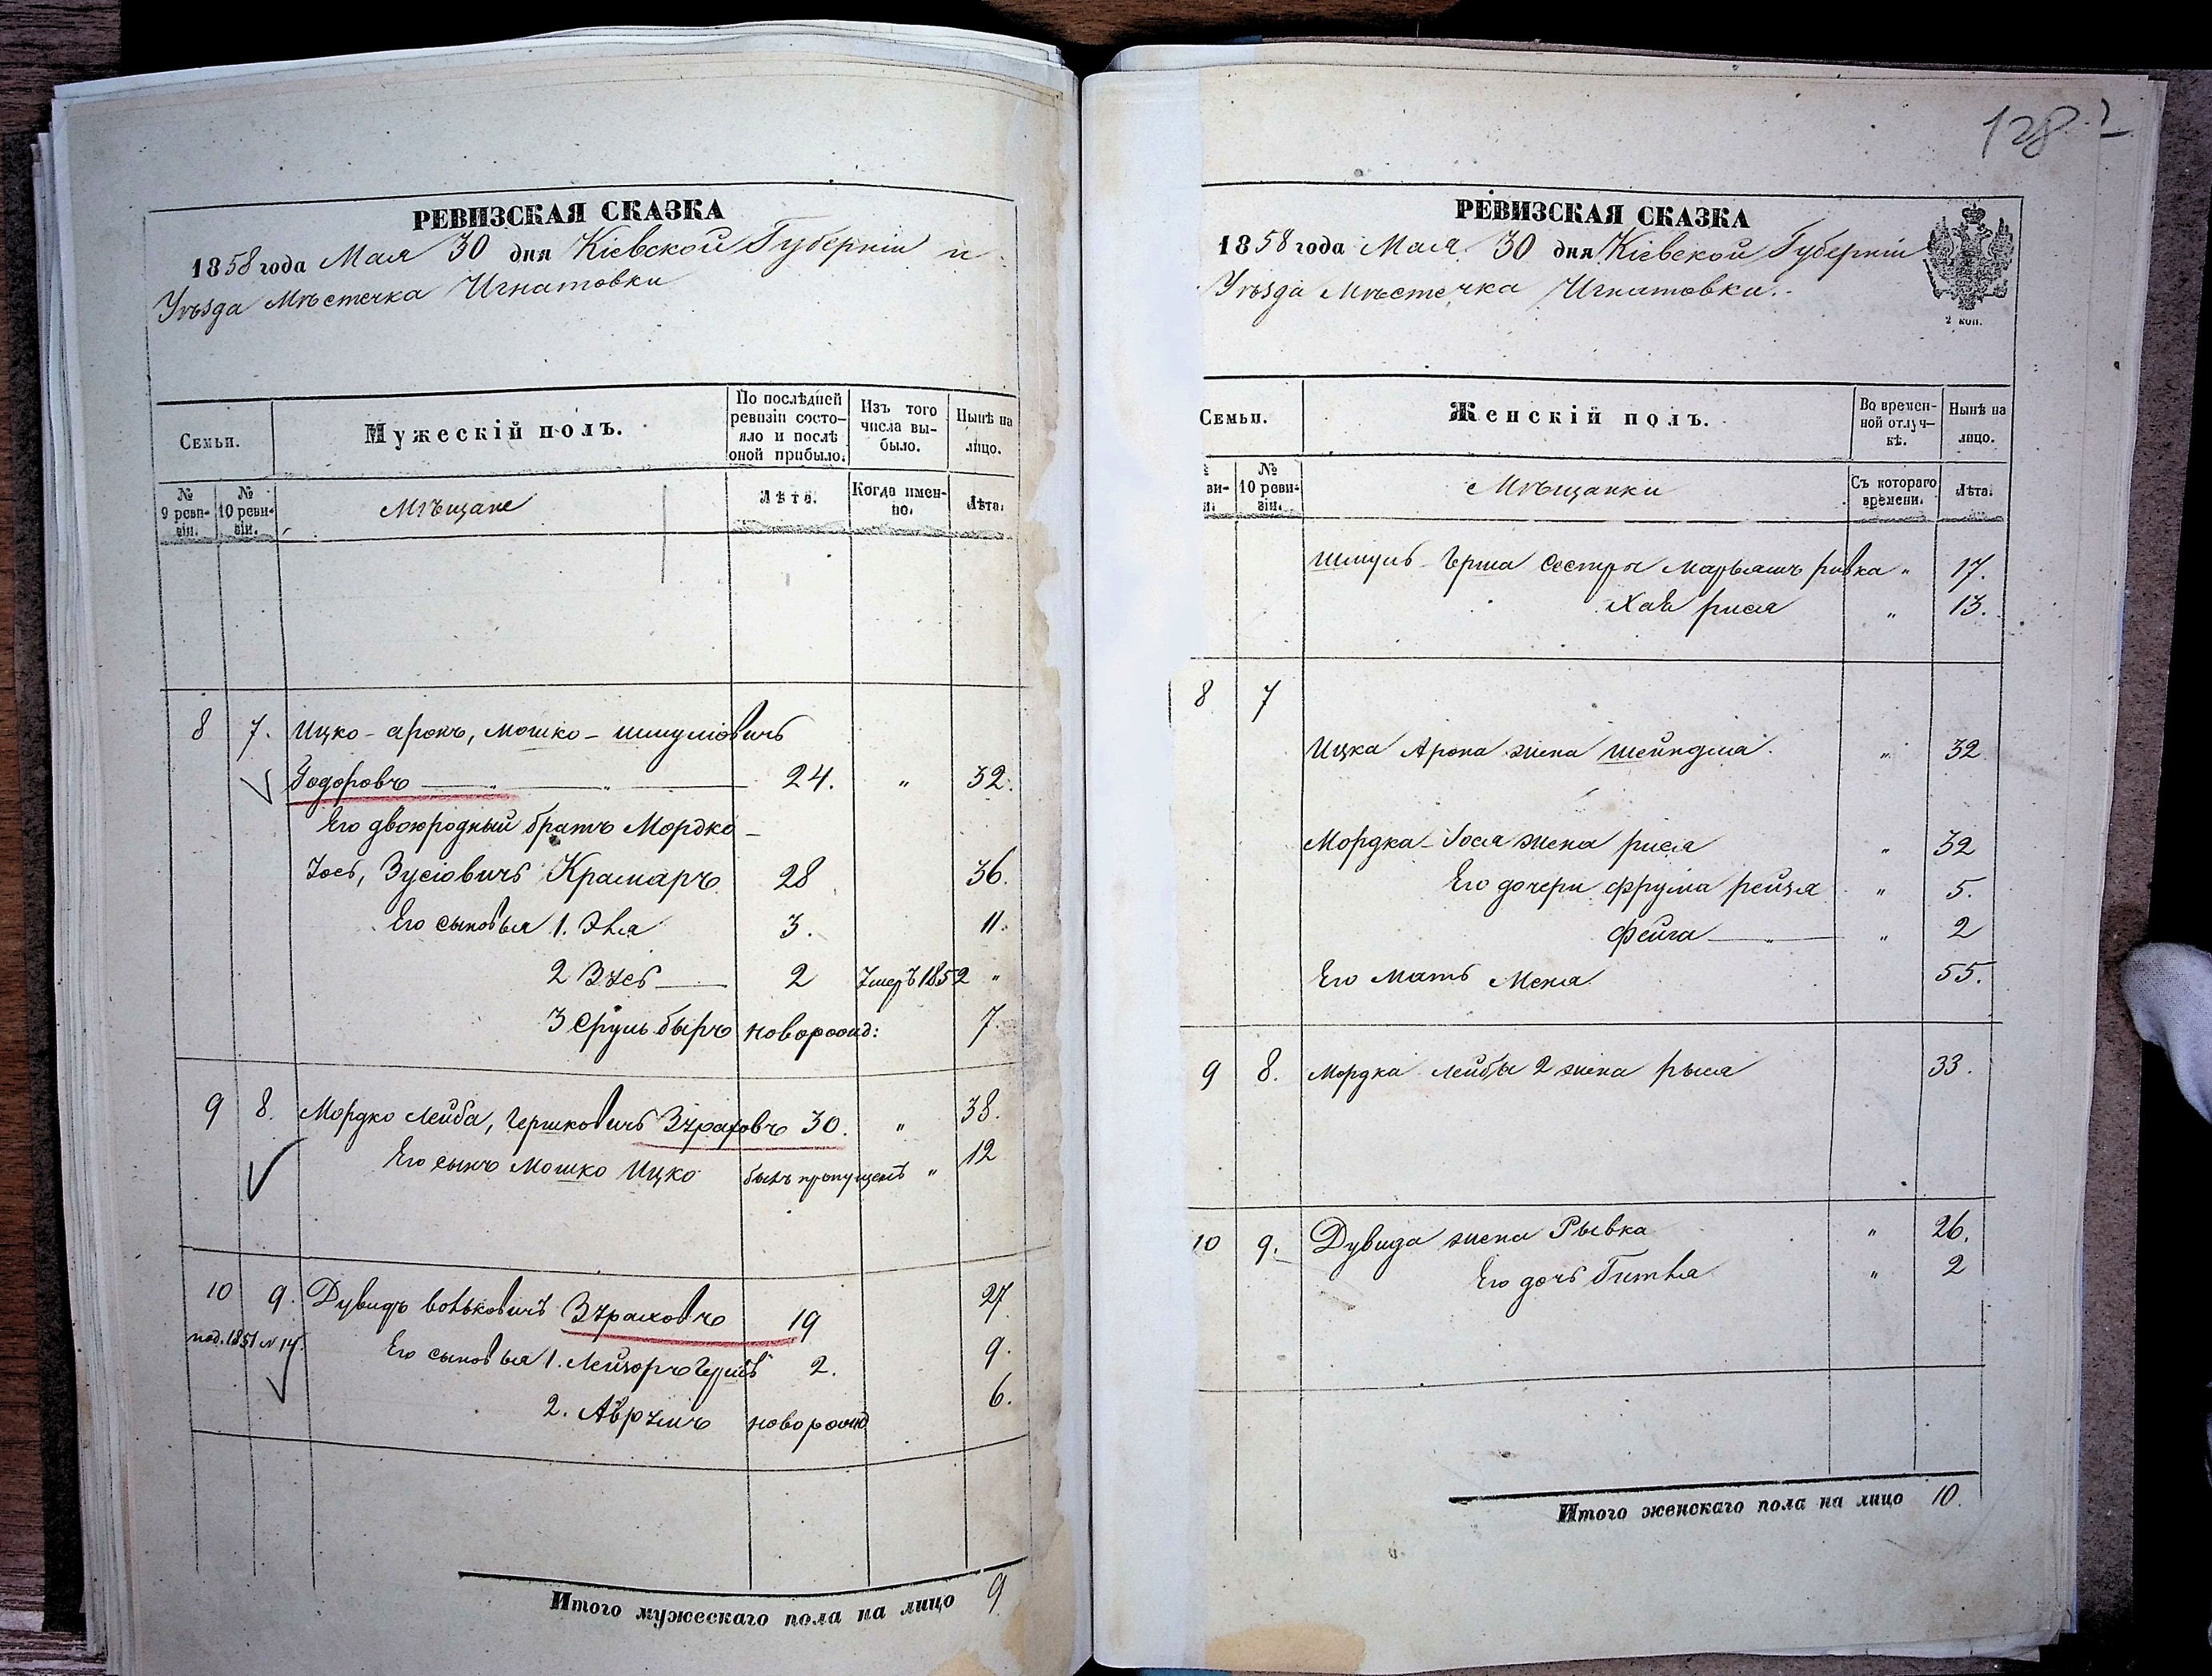 РЕВИЗСКАЯ СКАЗКА
1858 года Мая 30 дня Кіевской Губерніи и
Уѣзда Мѣстечка Игнатовки
Семьи.
Мужескій полъ.
По послѣдней ревизіи состояло и послѣ оной прибыло.
Изъ того числа выбыло.
Нынѣ на лицо.
№ 9 ревизіи.
№ 10 ревизіи.
Мѣщане
Лѣта.
Когда именно.
Лѣта.
8 7. Ицко-аронъ, мошко-шмуліовичъ
Ѳодоровъ 24. " 32.
Его двоюродный братъ Мордко-
Іось, Зусіовичъ Крамаръ 28 36.
Его сыновья 1. Эля 3. 11.
2 Зусь 2 Умеръ 1852 "
3 Сруль быръ новорожд: 7
9 8. Мордко Лейба, Гершковичъ 30. " 38.
Его сынъ Мошко Ицко былъ пропущенъ " 12
10 9. Дувидъ 19 27
под. 1851 № 14.
Его сыновья 1. Лейзоръ Гершъ 2. 9.
2. Аврумъ новорожд 6.
Итого мужескаго пола на лицо 9
128
РЕВИЗСКАЯ СКАЗКА
1858 года Мая 30 дня Кіевской Губерніи
Уѣзда Мѣстечка Игнатовки.
2 коп.
Семьи.
Женскій полъ.
Во временной отлучкѣ.
Нынѣ на лицо.
№ 10 ревизіи.
Мѣщанки
Съ котораго времени.
Лѣта.
Шмуль Герша сестры Марьямъ ривка " 17.
Хая рися " 13.
8 7
Ицка Арона жена шейндля. " 32
Мордка-Іося жена рися " 32
Его дочери фрума рейзя " 5.
Фейга " 2
Его мать Меня 55.
9 8. Мордка Лейбы 2 жена рыся 33.
10 9. Дувида жена Рывка " 26.
Его дочь Гитля " 2
Итого женскаго пола на лицо 10.